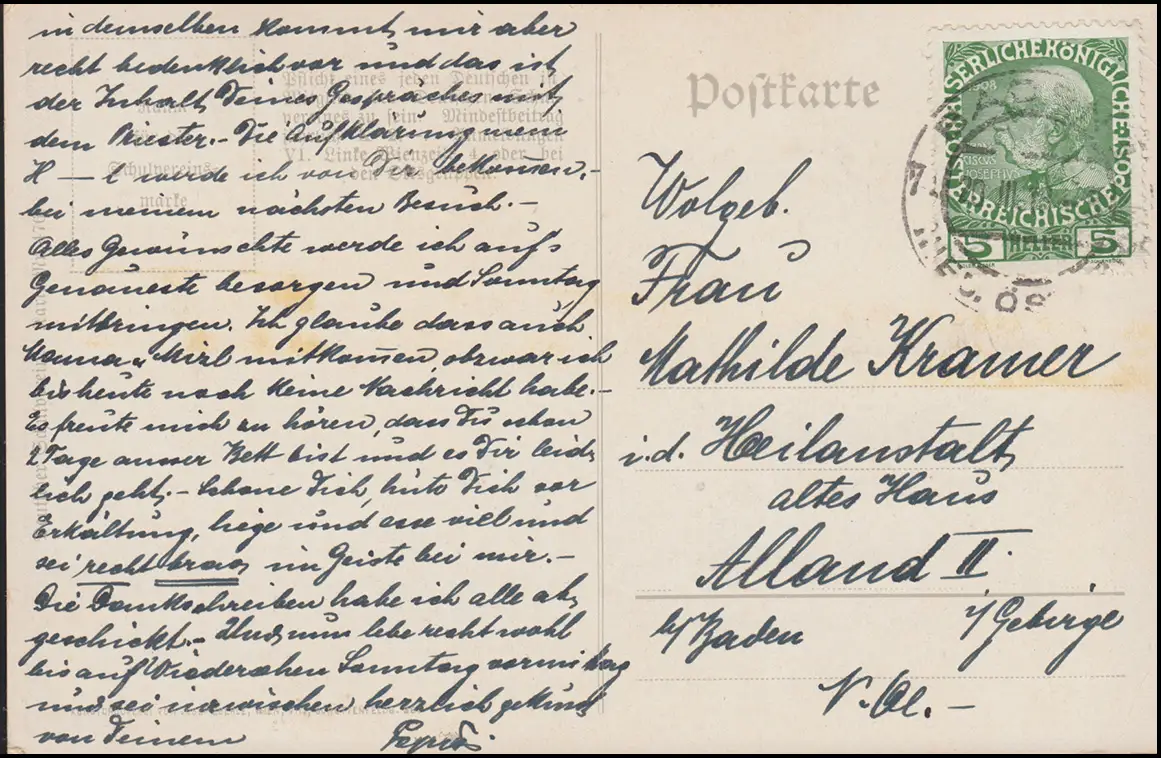 in demselben kommt mir aber
recht bedenklich vor und das ist
der Inhalt Deines Gespräches mit
dem Priester.- Die Aufklärung, mein
H — l werde ich von Dir bekommen,-
bei meinem nächsten Besuch.-
Alles Gewünschte werde ich auf's
Genaueste besorgen und Sonntag
mitbringen. Ich glaube dass auch
Mama u. Mirl mitkommen, obzwar ich
bis heute noch keine Nachricht habe.-
Es freute mich zu hören, dass Du schon
2 Tage ausser Bett bist und es Dir leid-
lich geht.- Schone Dich, hüte Dich vor
Erkältung, liege und esse viel und
sei recht brav, im Geiste bei mir.-
Die Dankschreiben habe ich alle ab-
geschickt.- Und nun lebe recht wohl
bis auf Wiedersehen Sonntag vormittag
und sei inzwischen herzlich geküsst
von Deinem
Pflicht eines jeden Deutschen ist
Mindestbeitrag
VI. Linke Wienzeile 4 oder bei
den Ortsgruppen.
Schulvereins-
marke
Postkarte
KAISERLICHE KÖNIGLICHE
ÖSTERREICHISCHE POST
1908
FRANCISCUS
JOSEPHUS
5 HELLER 5
III
Wolgeb.
Frau
Mathilde Kramer
i.d. Heilanstalt
altes Haus
Alland II.
b/Baden
i/Gebirge
N. Oe.-